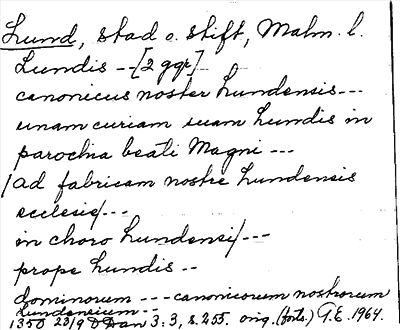 Lund, stad o. stift, Malm. l.
Lundis -- [2 ggr]
canonicus noster Lundensis ---
unam curiam suam Lundis in
parochia beati Magni ---
/ad fabricam nostre Lundensis
ecclesie/---
in choro Lundensi/---
prope Lundis --
dominorum --- canonicorum nostrorum
Lundensium --
1350 23/9 DDan 3:3, s. 255. orig. (forts.) G.E. 1964.